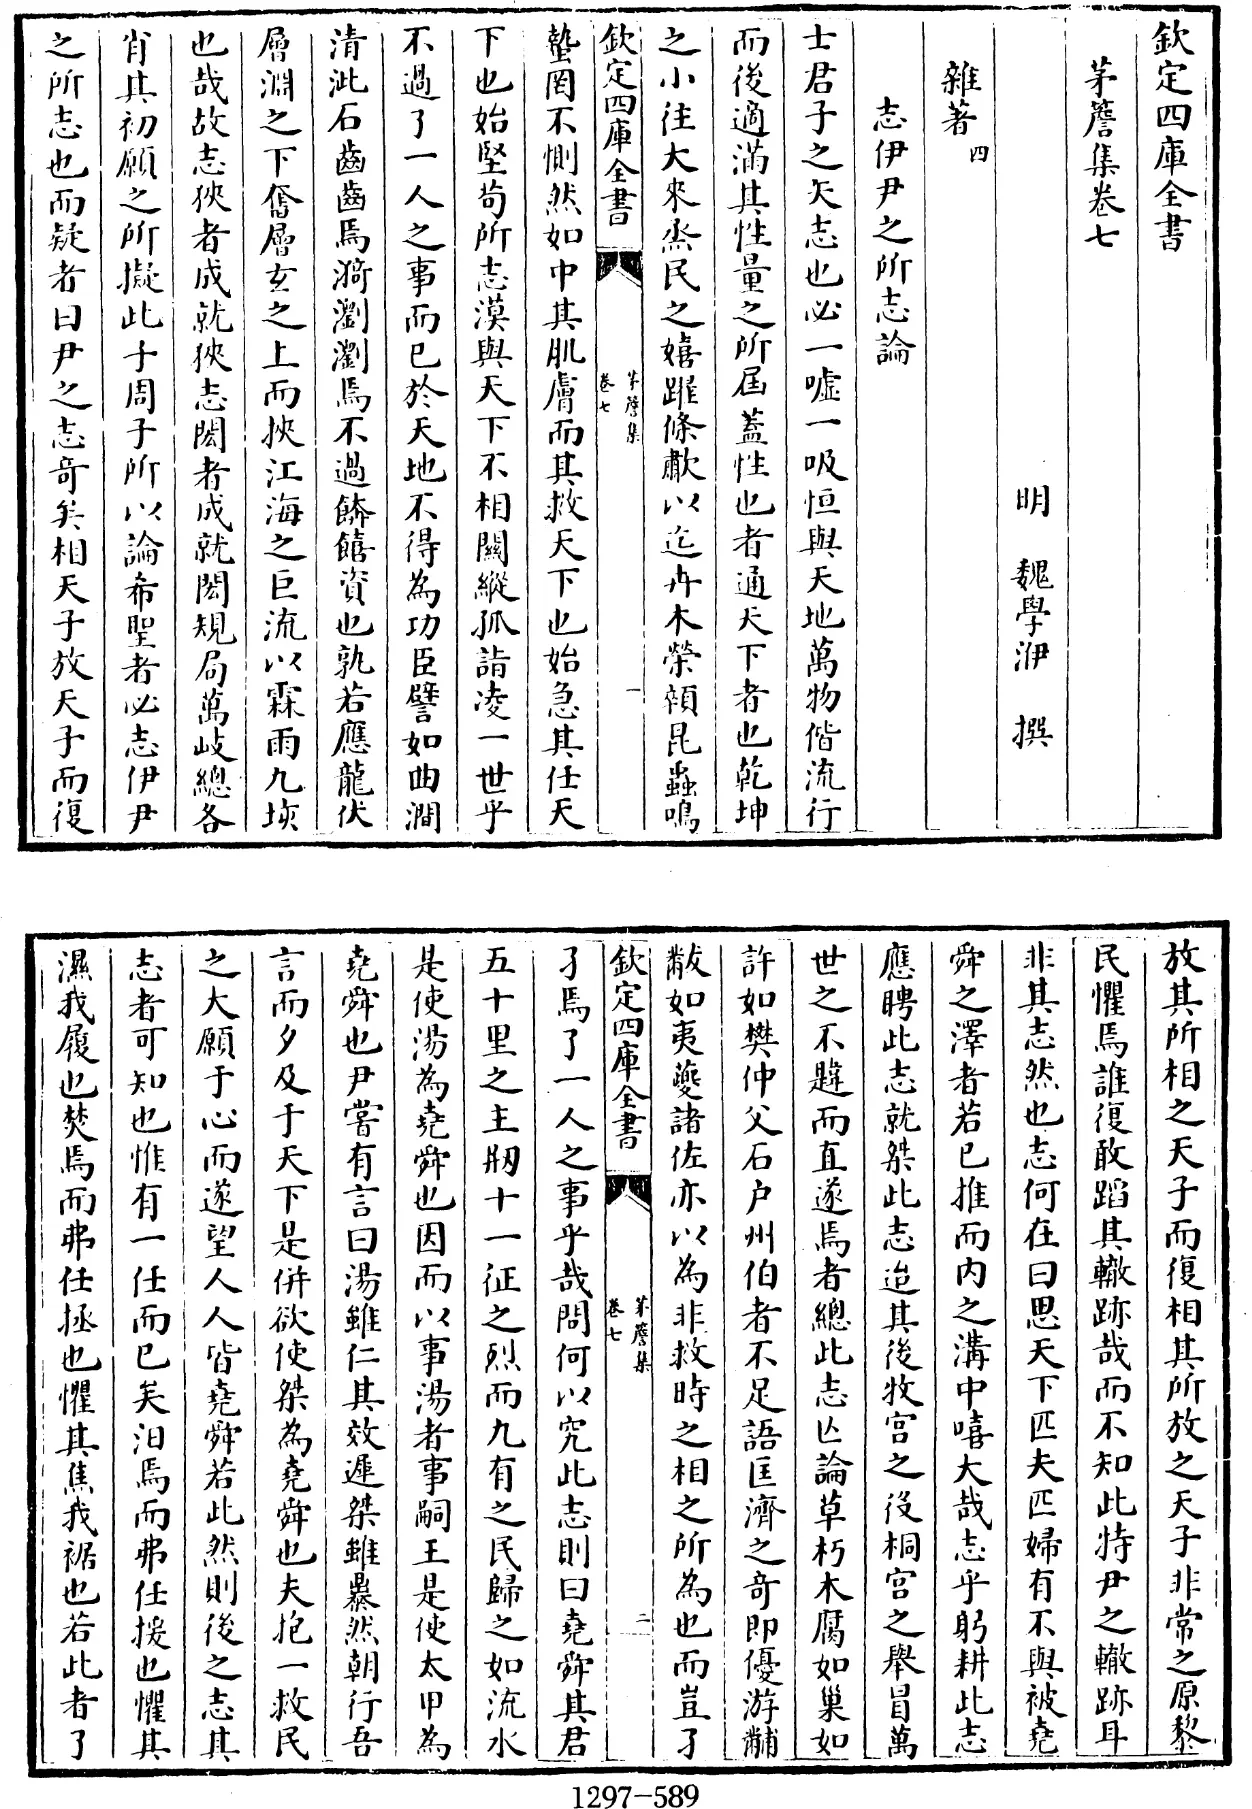 欽定四庫全書
茅簷集卷七
明　魏學洢　撰
雜著四
志伊尹之所志論
士君子之矢志也必一噓一吸恒與天地萬物偕流行
而後適滿其性量之所屆蓋性也者通天下者也乾坤
之小往大來烝民之嬉踀儵歗以迄卉木榮穎昆蟲鳴
欽定四庫全書
茅簷集
卷七
一
蟄罔不惻然如中其肌膚而其救天下也始急其任天
下也始堅苟所志漠與天下不相關縱孤詣凌一世乎
不過了一人之事而已於天地不得為功臣譬如曲澗
清泚石齒齒焉漪瀏瀏焉不過餴饎資也孰若應龍伏
層淵之下奮層玄之上而挾江海之巨流以霖雨九垓
也哉故志狹者成就狹志閎者成就閎規局萬岐總各
肖其初願之所擬此子周子所以論希聖者必志伊尹
之所志也而疑者曰尹之志奇矣相天子放天子而復
放其所相之天子而復相其所放之天子非常之原黎
民懼焉誰復敢蹈其轍跡哉而不知此特尹之轍跡耳
非其志然也志何在曰思天下匹夫匹婦有不與被堯
舜之澤者若已推而内之溝中嘻大哉志乎躬耕此志
應聘此志就桀此志迨其後牧宫之役桐宫之舉冒萬
世之不韙而直遂焉者總此志亡論草朽木腐如巢如
許如樊仲父石户州伯者不足語匡濟之奇即優游黼
黻如夷夔諸佐亦以為非救時之相之所為也而豈了
欽定四庫全書
茅簷集
卷七
二
了焉了一人之事乎哉問何以究此志則曰堯舜其君
五十里之主剏十一征之烈而九有之民歸之如流水
是使湯為堯舜也因而以事湯者事嗣王是使太甲為
堯舜也尹嘗有言曰湯雖仁其效遲桀雖暴然朝行吾
言而夕及于天下是併欲使桀為堯舜也夫抱一救民
之大願于心而遂望人人皆堯舜若此然則後之志其
志者可知也惟有一任而已矣汨焉而弗任援也懼其
濕我履也焚焉而弗任拯也懼其焦我裾也若此者了
1297-589